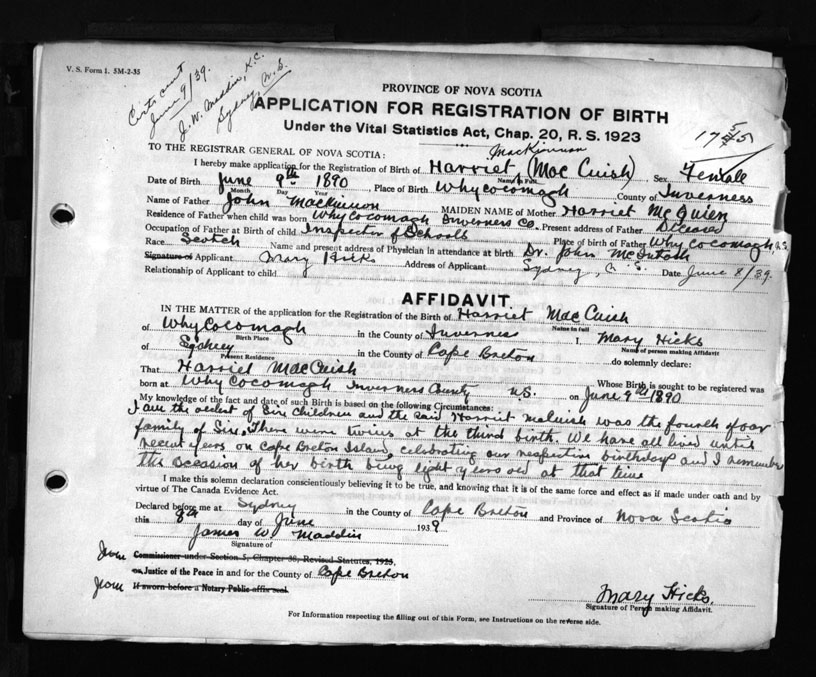 V. S. Form 1. 5M-2-35
Certs sent
June 9/39.
J. W. Maddin, K.C.
Sydney, N. S.
PROVINCE OF NOVA SCOTIA
APPLICATION FOR REGISTRATION OF BIRTH
Under the Vital Statistics Act, Chap. 20, R. S. 1923
TO THE REGISTRAR GENERAL OF NOVA SCOTIA:
MacKinnon
I hereby make application for the Registration of Birth of Harriet (Mac Cuish) Sex Female
Name in Full
Date of Birth June 9th 1890, Place of Birth Whycocomagh County of Inverness
Month Day Year
Name of Father John MacKinnon MAIDEN NAME of Mother Harriet McQuien
Residence of Father when child was born Whycocomagh Inverness Co. Present address of Father Deceased
Occupation of Father at Birth of Child Inspector of Schools Place of birth of Father Whycocomagh, N.S.
Race Scotch Name and present address of Physician in attendance at birth Dr. John McIntosh
Signature of Applicant Mary Hicks Address of Applicant Sydney, N. S. Date June 8/39.
Relationship of Applicant to child
AFFIDAVIT.
IN THE MATTER of the application for the Registration of the Birth of Harriet MacCuish
Name in full
of Whycocomagh in the County of Inverness I, Mary Hicks
Birth Place Name of person making Affidavit
of Sydney in the County of Cape Breton do solemnly declare:
Present Residence
That Harriet MacCuish Whose Birth is sought to be registered was
born at Whycocomagh Inverness County N.S. on June 9th 1890
My knowledge of the fact and date of such Birth is based on the following Circumstances:
I am the oldest of Six Children and the said Harriet was the fourth of our
family of Six. There were twins at the third birth. We have all lived until
recent years on Cape Breton Island, celebrating our respective birthdays and I remember
the occasion of her birth being eight years old at that time
I make this solemn declaration conscientiously believing it to be true, and knowing that it is of the same force and effect as if made under oath and by
virtue of The Canada Evidence Act.
Declared before me at Sydney in the County of Cape Breton and Province of Nova Scotia
this 8th day of June 1939
James W Maddin
Signature of
Commissioner under Section 5, Chapter 38, Revised Statutes, 1923,
or Justice of the Peace in and for the County of Cape Breton
If sworn before a Notary Public affix seal.
Mary Hicks.
Signature of Person making Affidavit.
For Information respecting the filling out of this Form, see Instructions on the reverse side.